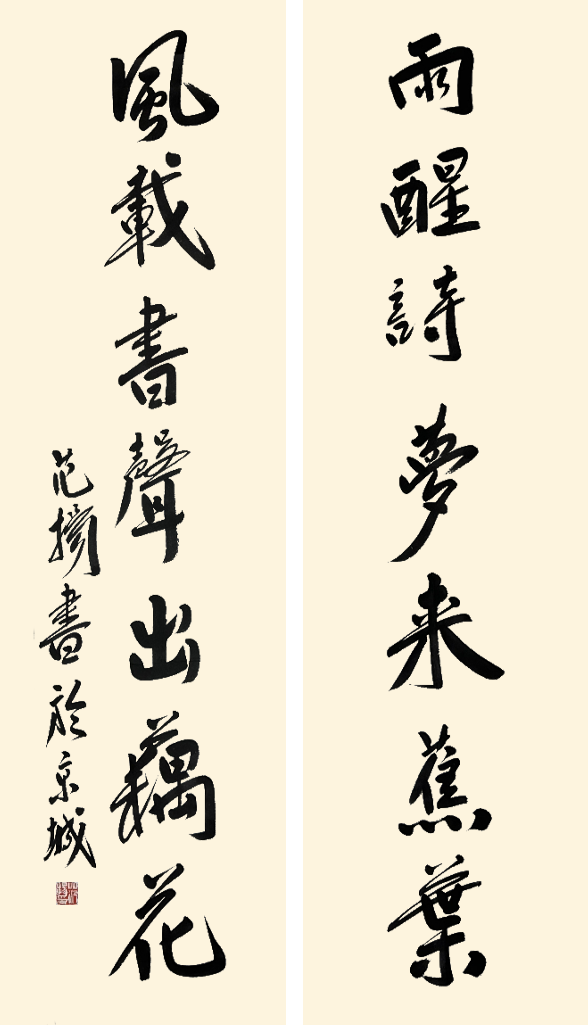 雨醒詩夢来蕉葉
風載書聲出藕花
范擕書於京城